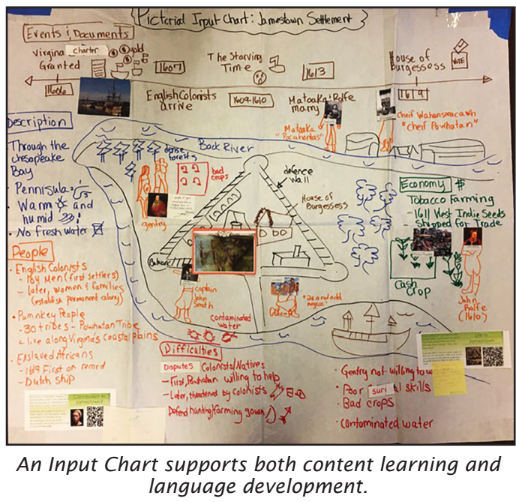 Pictorial Input Chart: Jamestown Settlement
Events & Documents
Virginia charter
Granted
gold
1606
1607
English Colonists
arrive
The Starving
Time
1609-1610
1613
Matoaka & Rolfe
marry
Matoaka
"Pocahontas"
House of
Burgessess
VOTE
1619
"Chief Powhatan"
Description
Through the
chesapeake
Bay
Warm and
humid
No fresh water
Back River
dense
forests
bad
crops
gentry
defence
wall
House of
Burgessess
captain
John
Smith
contaminated
water
Economy $
Tobacco Farming
- 1611 West Indie Seeds
shipped for Trade
Cash
Crop
John
Rolfe
(1610)
People
English Colonists
(first settlers)
- Later, Women & Families
(establish permanent colony)
- 30 tribes - Powhatan Tribe
Live along Virginia's Coastal plains
Enslaved Africans
- 1619 First on record
- Dutch ship
Difficulties
Disputes Colonists/Natives
- First, Powhatan willing to help
- Later, threatened by Colonists
Defend hunting/farming
Gentry not willing to
Poor skills
Bad crops
contaminated water
An Input Chart supports both content learning and
language development.